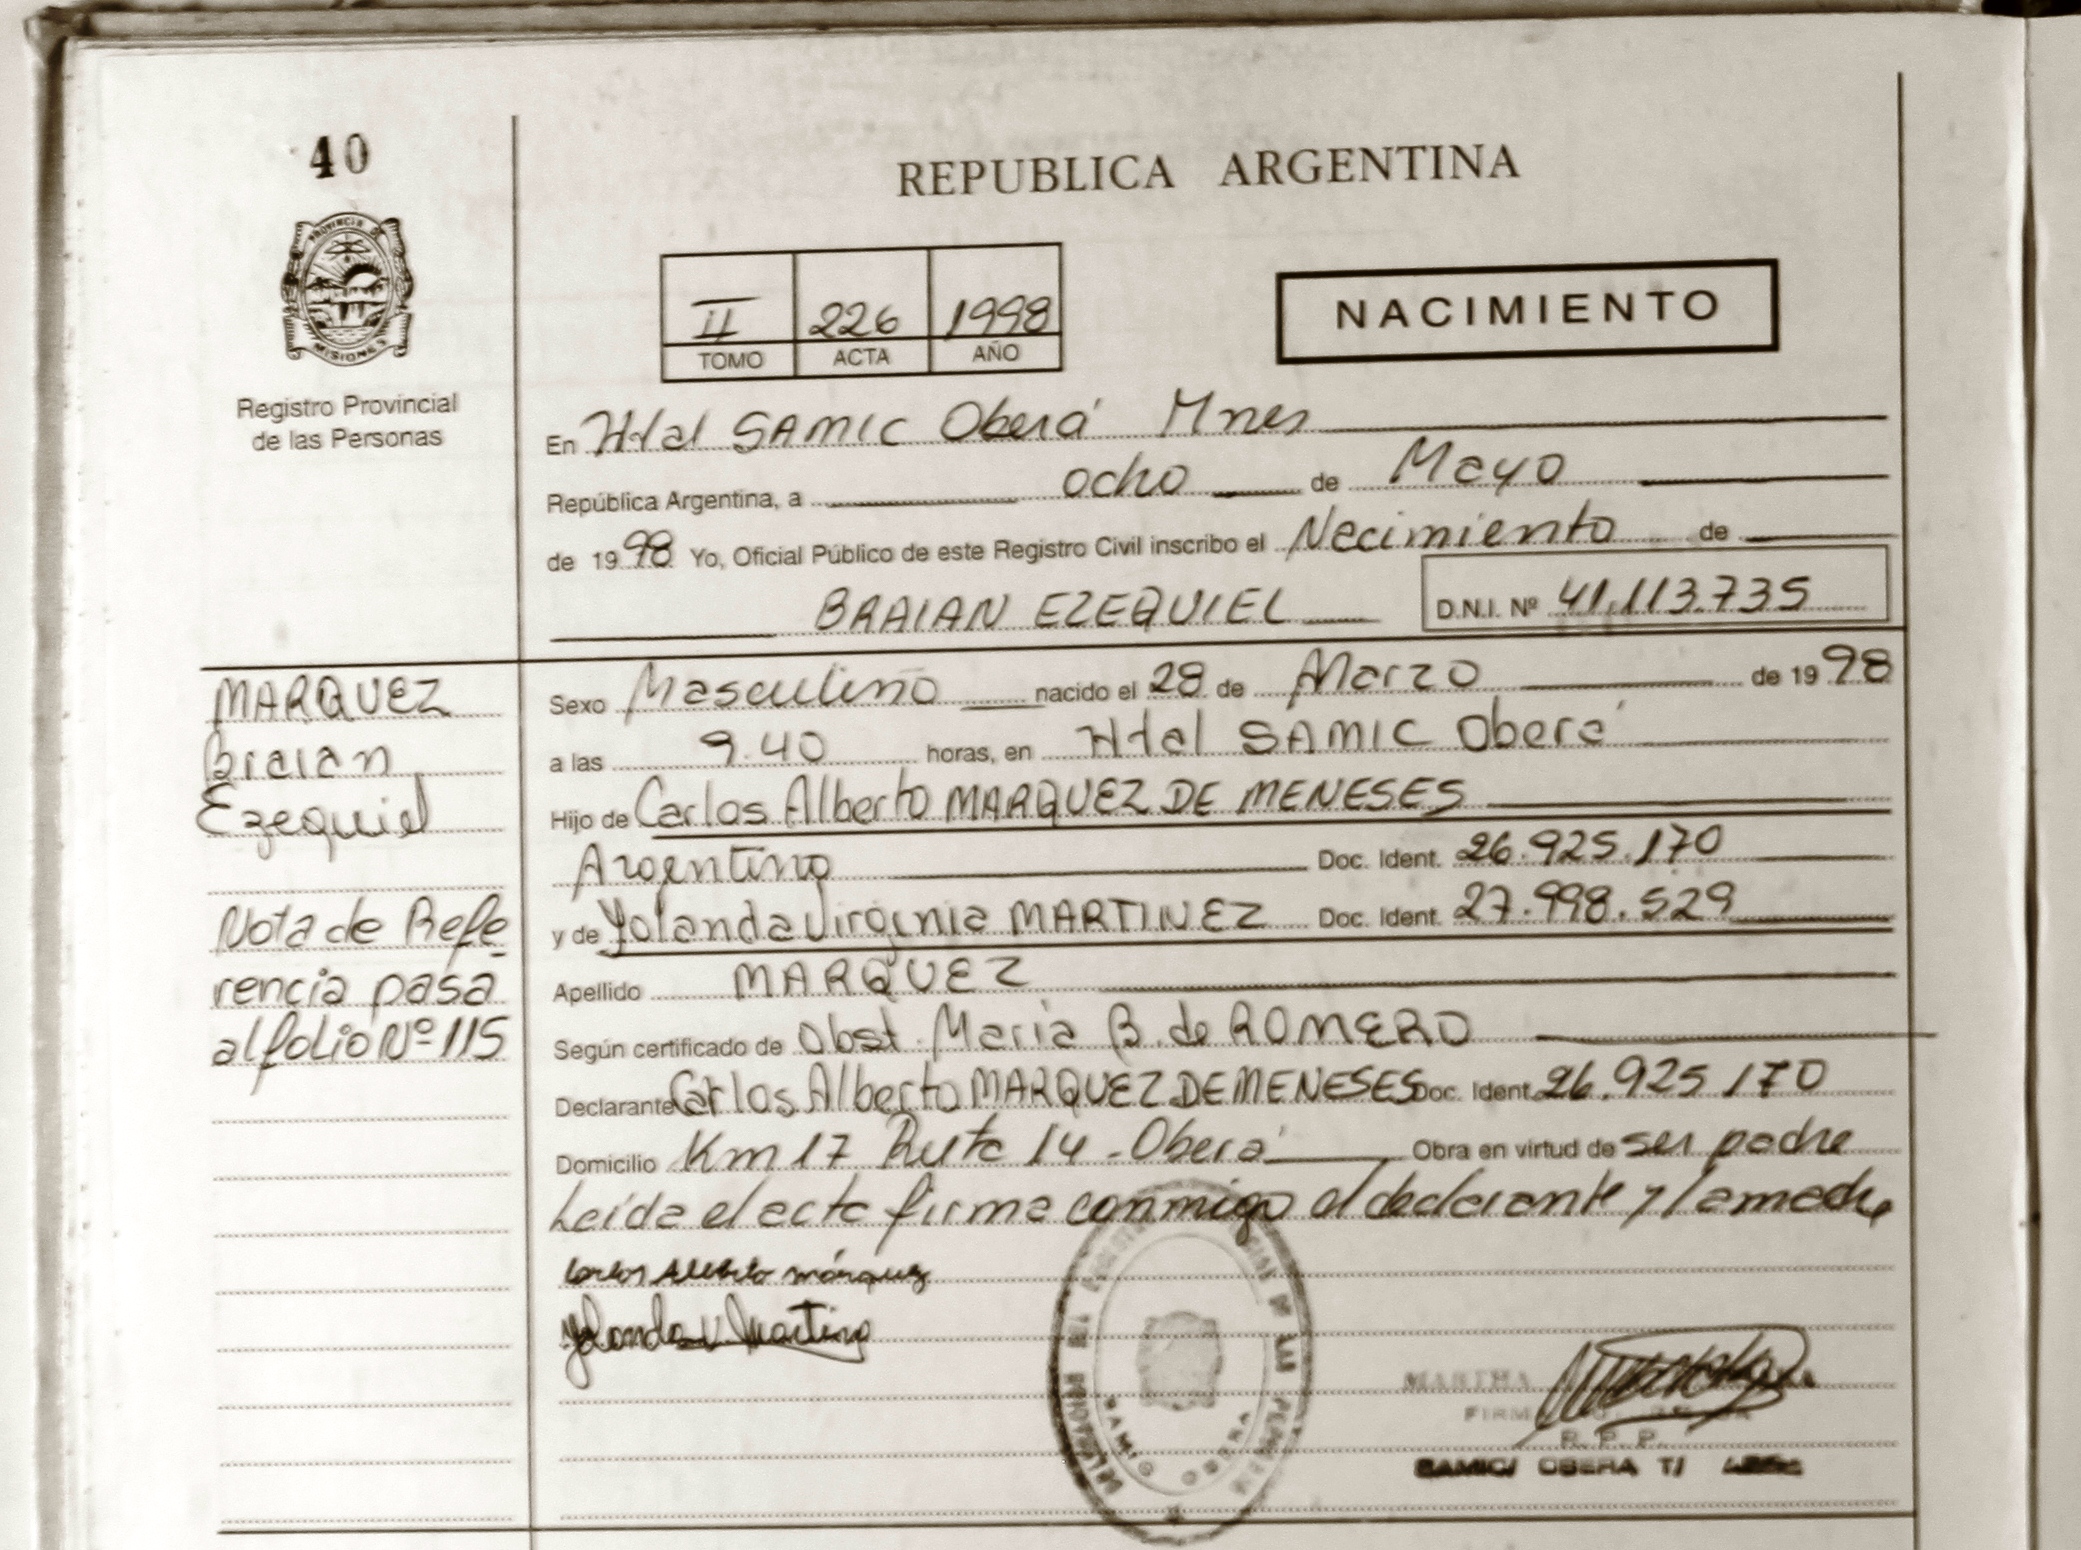 40
REPUBLICA ARGENTINA
PROVINCIA DE
MISIONES
Registro Provincial
de las Personas
II 226 1998
TOMO ACTA AÑO
NACIMIENTO
En Htal SAMIC Oberá Mnes
República Argentina, a ocho de Mayo
de 1998 Yo, Oficial Público de este Registro Civil inscribo el Nacimiento de
BRAIAN EZEQUIEL D.N.I. Nº 41.113.735
MARQUEZ
Braian
Ezequiel
Nota de Refe
rencia pasa
al folio Nº 115
Sexo Masculino nacido el 28 de Marzo de 1998
a las 9.40 horas, en Htal SAMIC Oberá
Hijo de Carlos Alberto MARQUEZ DE MENESES
Argentino Doc. Ident. 26.925.170
y de Yolanda Virginia MARTINEZ Doc. Ident. 27.998.529
Apellido MARQUEZ
Según certificado de Obst. Maria B. de ROMERO
Declarante Carlos Alberto MARQUEZ DE MENESES Doc. Ident. 26.925.170
Domicilio Km 17 Ruta 14 - Oberá Obra en virtud de ser padre
Leída el acta firma conmigo el declarante y la madre
Carlos Alberto Márquez
Yolanda V. Martinez
SAMIC OBERA
MARTHA
R.P.P.
SAMIC/ OBERA T/